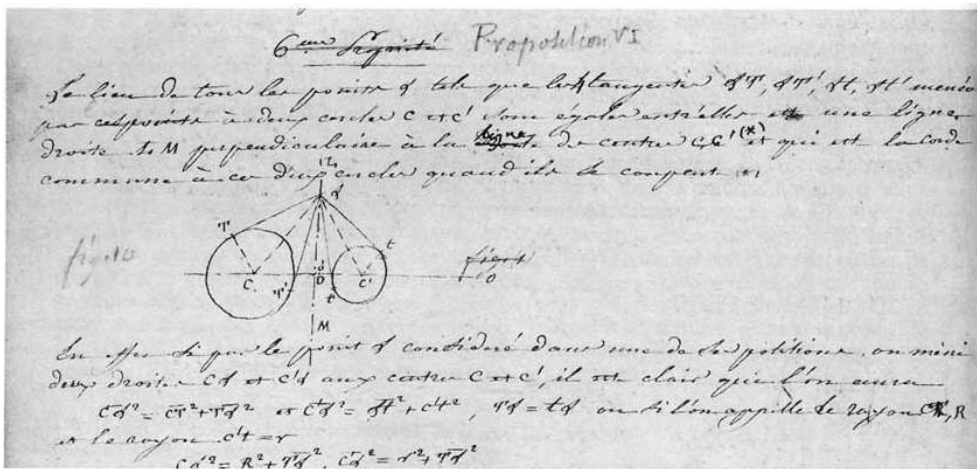 6ème Propriété Proposition VI
Le lieu de tous les points d tels que les tangentes dT, dT', dt, dt' menées
par ces points à deux cercles C et C' sont égales entr'elles est une ligne
droite M perpendiculaire à la ligne de centre C,C' (*) et qui est la corde
commune à ces deux cercles quand ils se coupent
d
T
t
fig. 10
C
T'
D
t'
C'
O
M
En effet si par le point d considéré dans une de ses positions, on mène
deux droites Cd et C'd aux centres C et C', il est clair que l'on aura
Cd² = CT² + Td² et C'd² = dt² + C't², Td = td ou si l'on appelle le rayon CT, R
et le rayon C't = r
Cd² = R² + Td², C'd² = r² + Td²